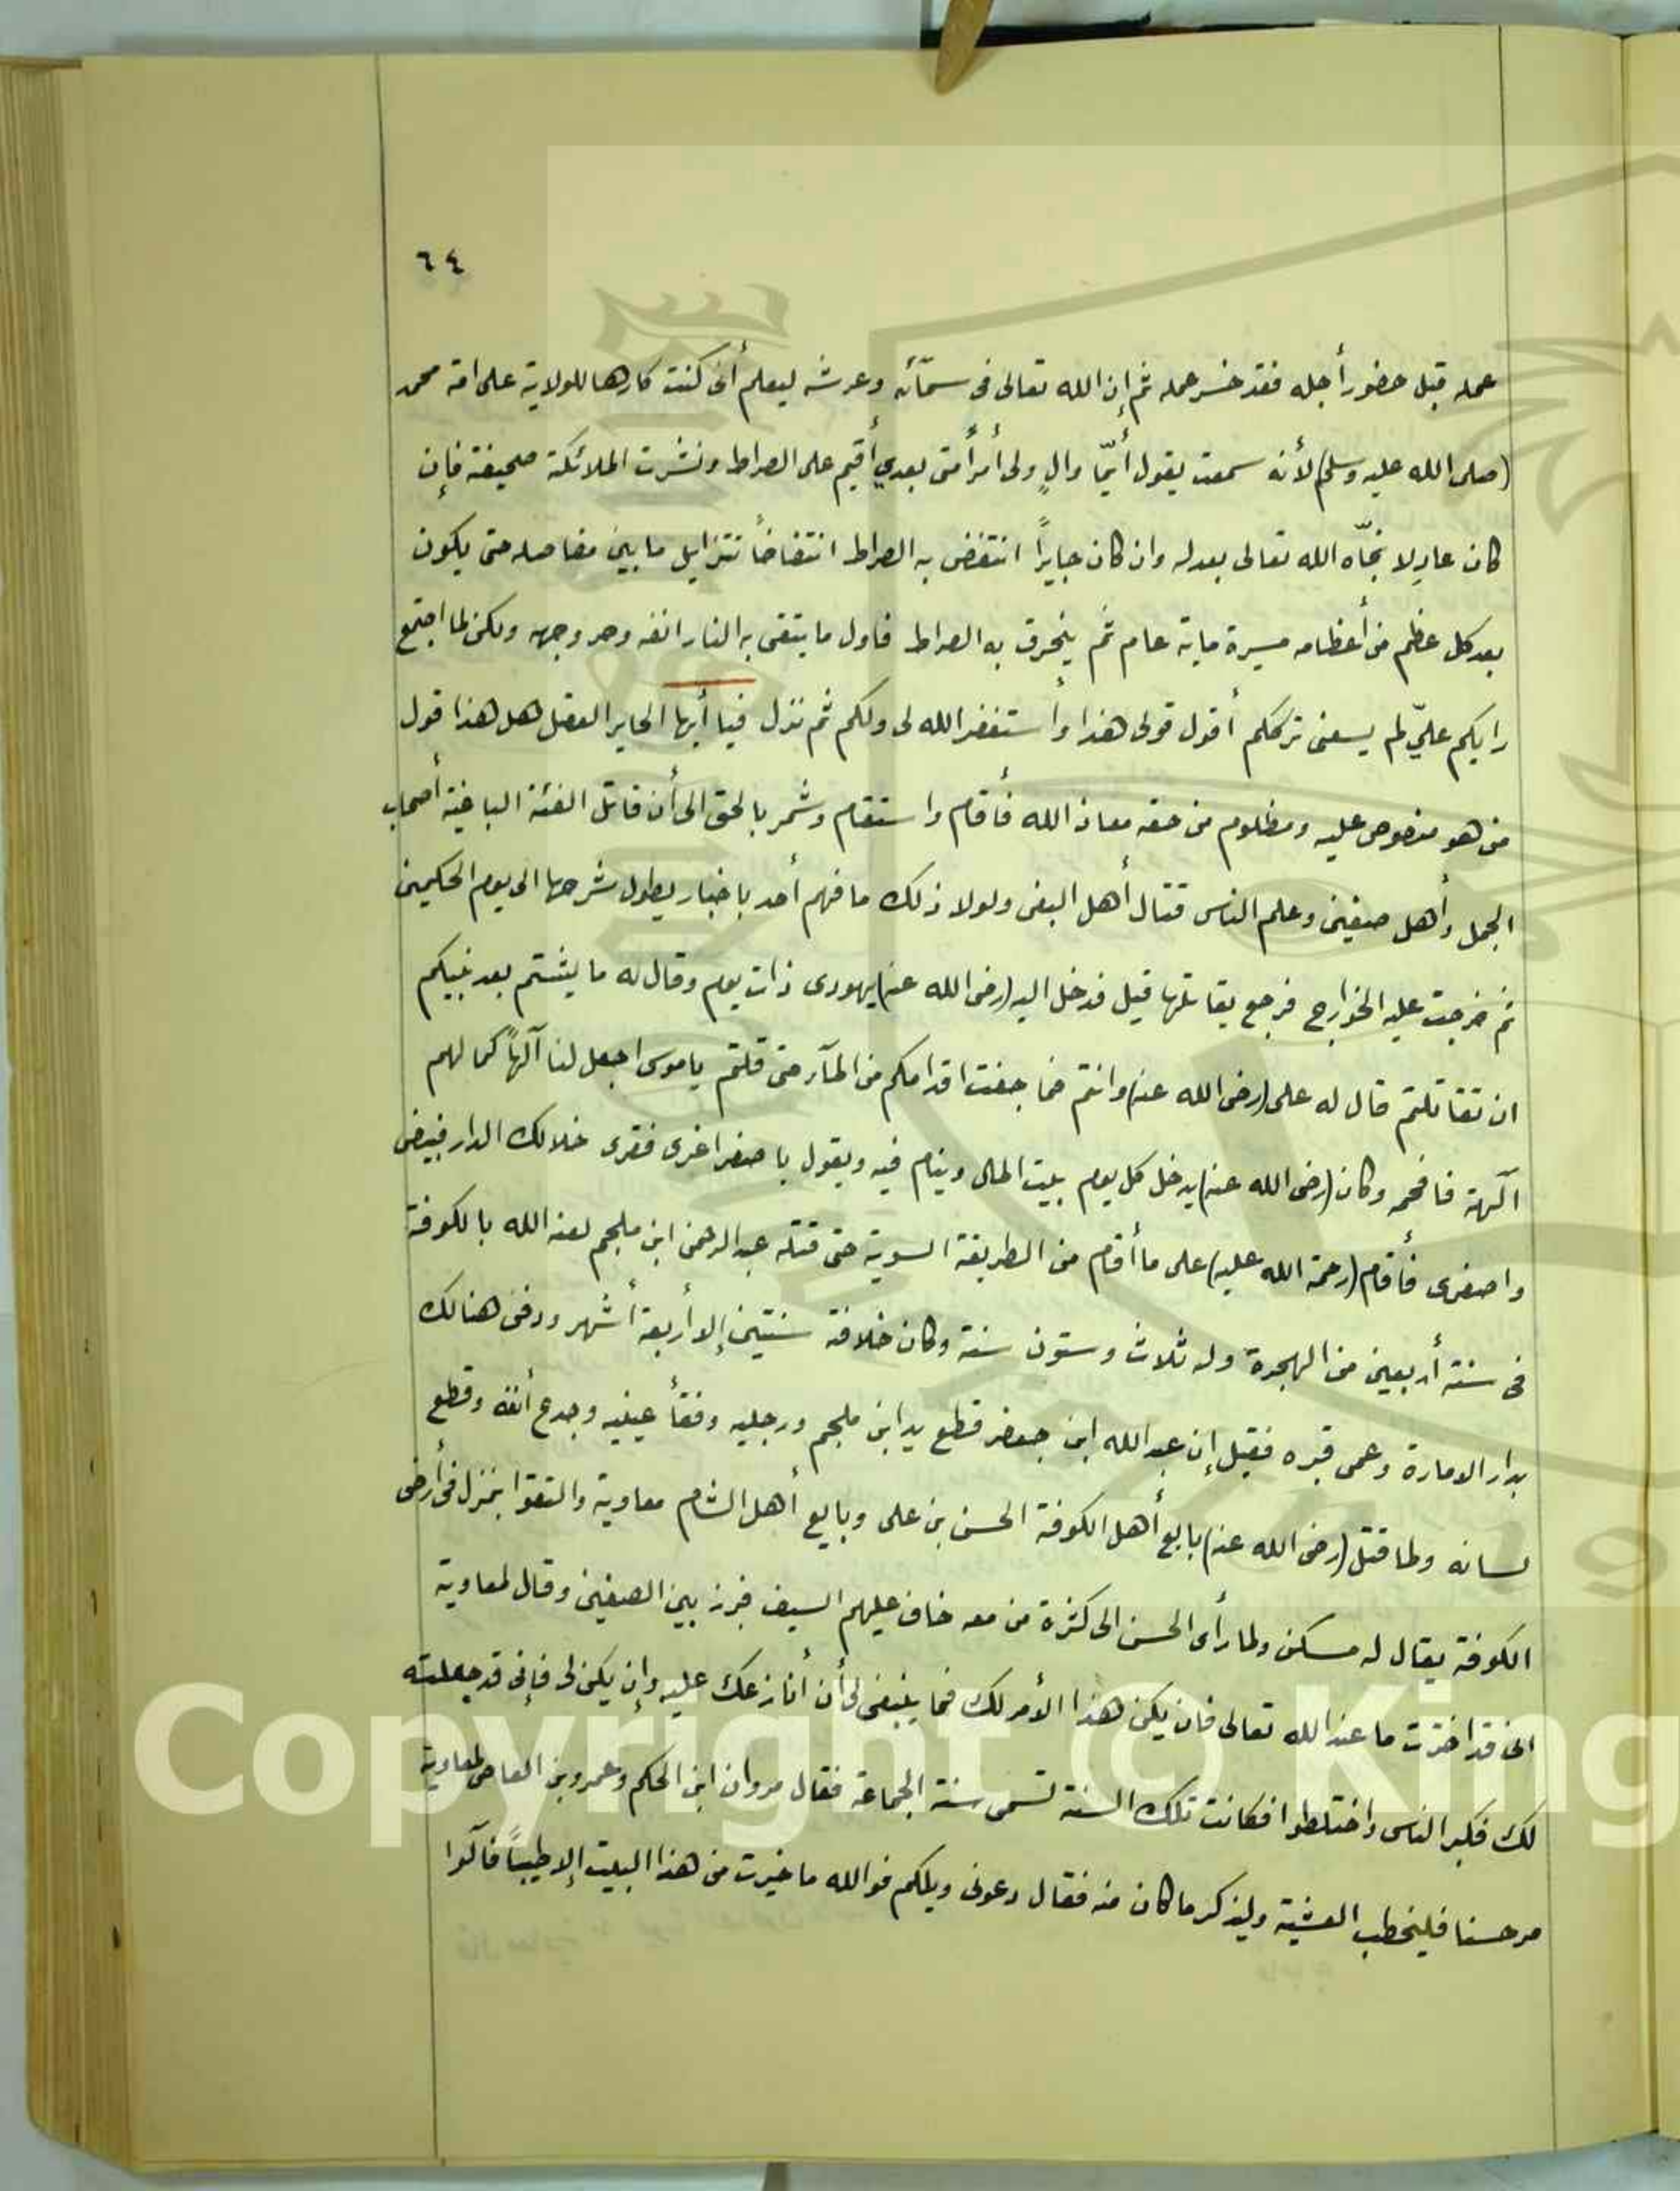 ٦٤
عمله قبل حضور أجله فقد خسر عمله ثم إن الله تعالى فى سمآئه وعرشه ليعلم أنى كنت كارها للولاية على امة محمد
(صلى الله عليه وسلم) لأنه سمعت يقول أيّما والٍ ولى أمر أمتى بعدي أقيم على الصراط ونشرت الملائكة صحيفة فإن
كان عادلا نجّاه الله تعالى بعدله وان كان جايراً انتفض به الصراط انتفاضاً تتزايل ما بين مفاصله حتى يكون
بعد كل عظم من أعظامه مسيرة ماية عام ثم ينخرق به الصراط فاول ما يتقى به النار انفه وحر وجهه ولكن لما اجتمع
رايكم عليّ لم يسعنى ترككم أقول قولى هذا وأستغفر الله لى ولكم ثم نزل فيا أيها الحاير العقل هل هذا قول
من هو منصوص عليه ومظلوم من حقه معاذ الله فأقام واستقام وشمر بالحق الى أن قاتل الفئة الباغية أصحاب
الجمل وأهل صفين وعلم الناس قتال أهل البغى ولولا ذلك ما فهم أحد باخبار يطول شرحها الى يوم الحكمين
ثم خرجت عليه الخوارج فرجع يقاتلها قيل فدخل اليه (رضى الله عنه) يهودى ذات يوم وقال له ما يشتم بعد نبيكم
ان تقاتلتم قال له على (رضى الله عنه) وانتم فما جفت اقدامكم من المآء حتى قلتم ياموسى اجعل لنا آلهاً كما لهم
آلهة فافحمه وكان (رضى الله عنه) يدخل كل يوم بيت المال وينام فيه ويقول يا صفرا غرى فقرى خلالك الدار فبيضى
واصفرى فأقام (رحمة الله عليه) على ما أقام من الطريقة السوية حتى قتله عبد الرحمن ابن ملجم لعنه الله بالكوفة
فى سنة أربعين من الهجرة وله ثلاث وستون سنة وكان خلافة سنتين إلا أربعة أشهر ودفن هنالك
بدار الامارة وعمى قبره فقيل إن عبد الله ابن جعفر قطع يد ابن ملجم ورجليه وفقأ عينيه وجدع أنفه وقطع
لسانه ولما قتل (رضى الله عنه) بايع أهل الكوفة الحسن بن على وبايع أهل الشام معاوية والتقوا بمنزل فى أرض
الكوفة يقال له مسكن ولما رأى الحسن الى كثرة من معه خاف عليهم السيف فبرز بين الصفين وقال لمعاوية
انى قد اخترت ما عند الله تعالى فان يكن هذا الأمر لك فما ينبغى لى أن أنازعك عليه وإن يكن لى فإنى قد جعلته
لك فكبر الناس واختلطوا فكانت تلك السنة تسمى سنة الجماعة فقال مروان ابن الحكم وعمرو بن العاص لمعاوية
مر حسنا فليخطب العشية وليذكر ما كان منه فقال دعونى ويلكم فوالله ما خيرت من هذا البيت إلا طيباً فآلوا
Copyright © King